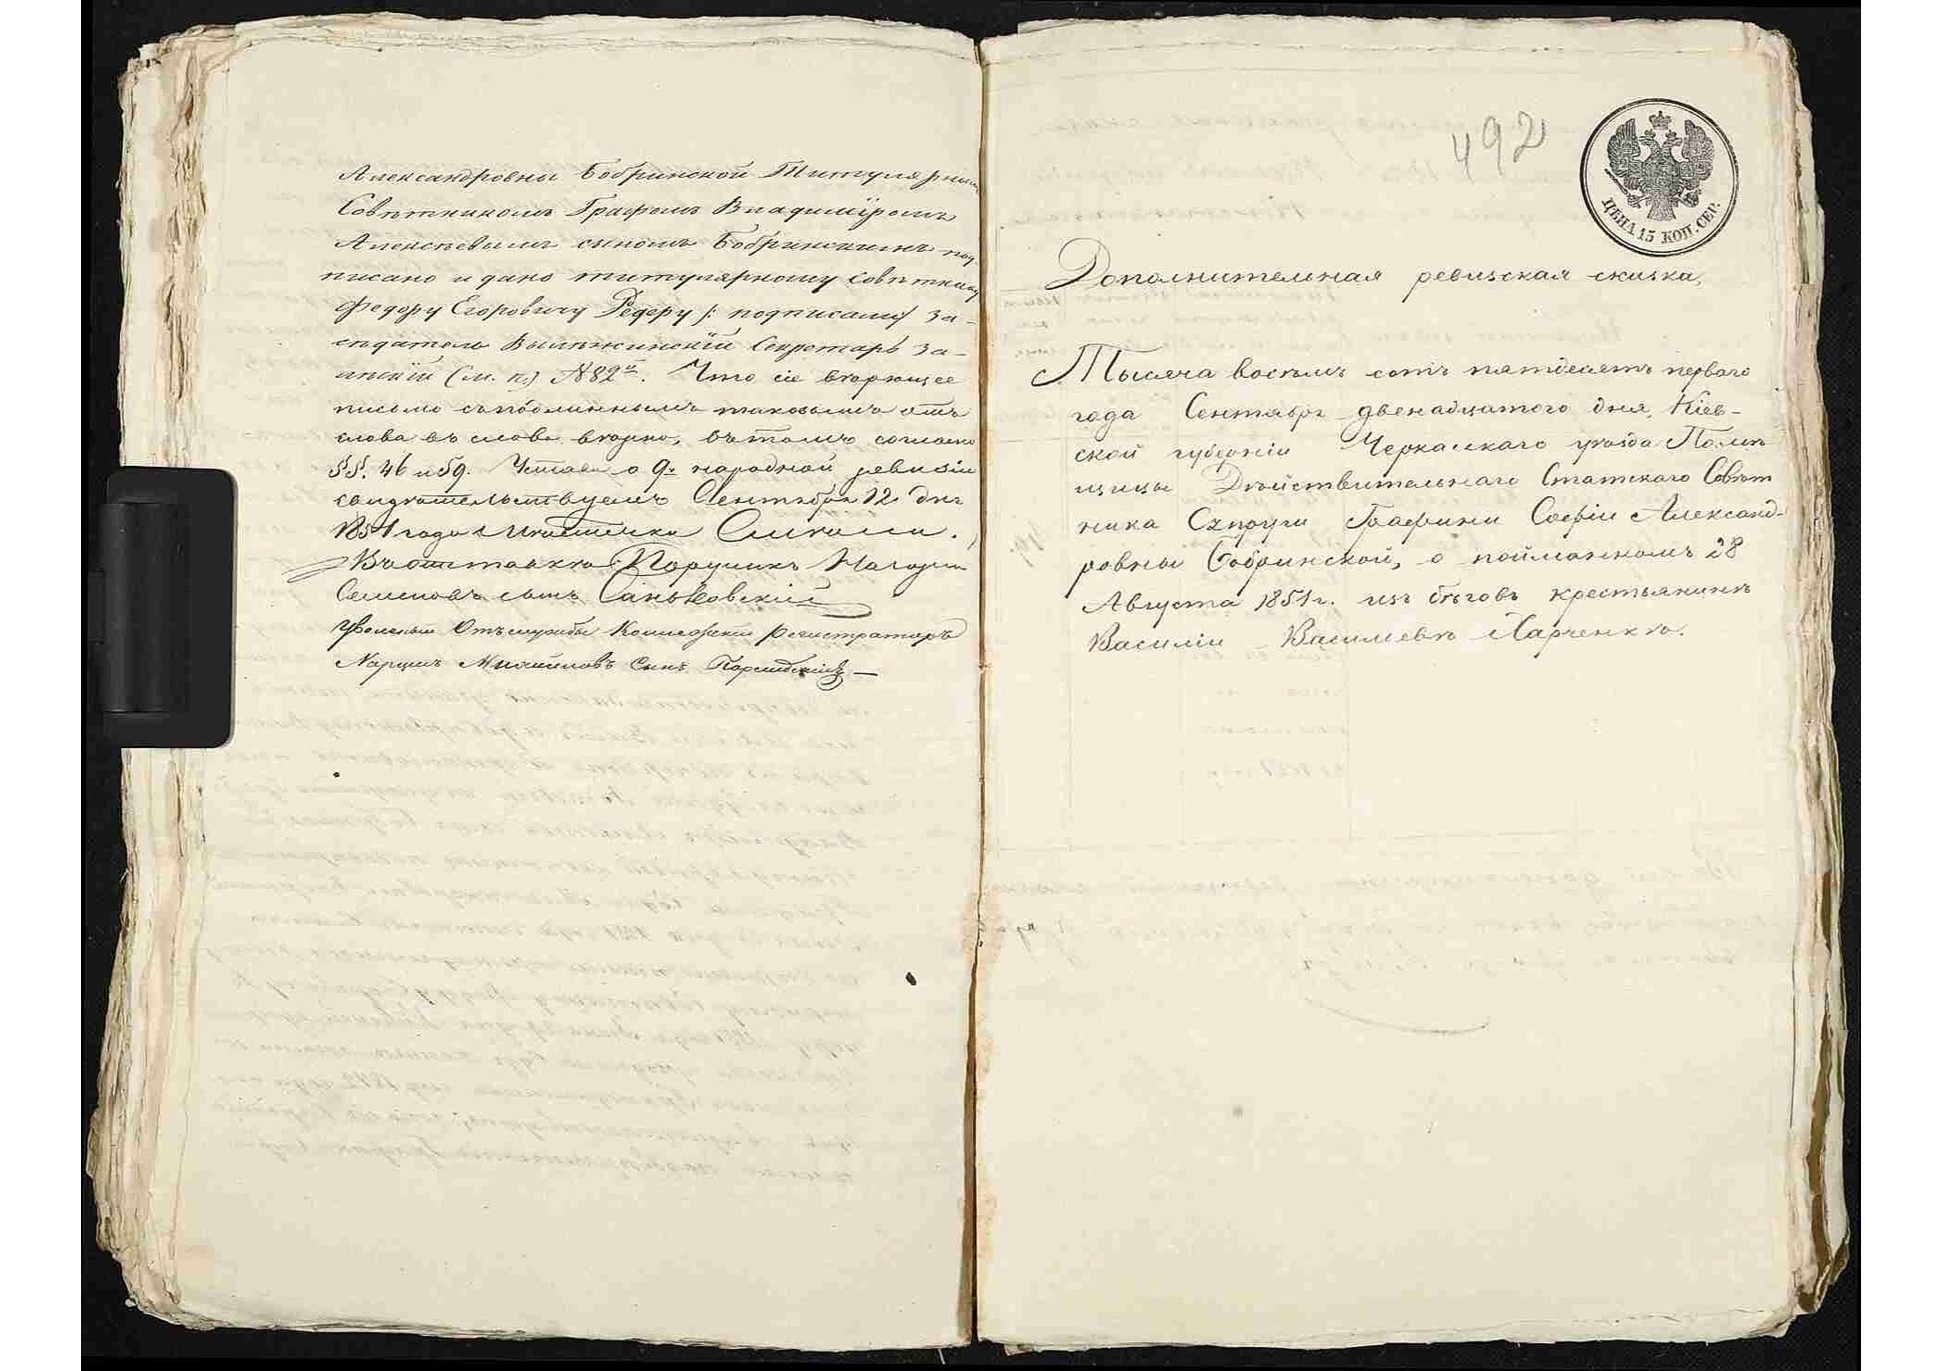 Александровны Бобринской Титулярнымъ
Совѣтникомъ Графомъ Владиміромъ
Алексѣевымъ сыномъ Бобринскимъ под-
писано и дано титулярному Совѣтнику
Федору Егоровичу Редеру /: подписали/ За-
сѣдатель Секретарь За-
(м. п.) №82й. Что сіе вѣрющее
письмо съ подлиннымъ таковымъ отъ
слова въ слово вѣрно, въ томъ согласно
§§. 46 и 59. Устава о 9й народной ревизіи
свидѣтельствуемъ Сентября 12 дня
1851 года Мѣстечко Смѣла.
Въ отставкѣ Поручикъ
Семеновъ сынъ Саньковскій
Уволеный Отъ службы Коллежскій регистраторъ
Сынъ
492
ЦѢНА 15 КОП. СЕР.
Дополнительная ревизская сказка,
Тысяча восемь сотъ пятдесятъ перваго
года Сентября двенадцатого дня, Кіев-
ской губерніи Черкасскаго уѣзда Помѣ
щицы Дѣйствительнаго Статскаго Совѣт
ника Супруги Графини Софіи Александ-
ровны Бобринской, о пойманномъ 28
Августа 1851 г. изъ бѣговъ крестьянинѣ
Василіи Васильевѣ Харченкѣ.